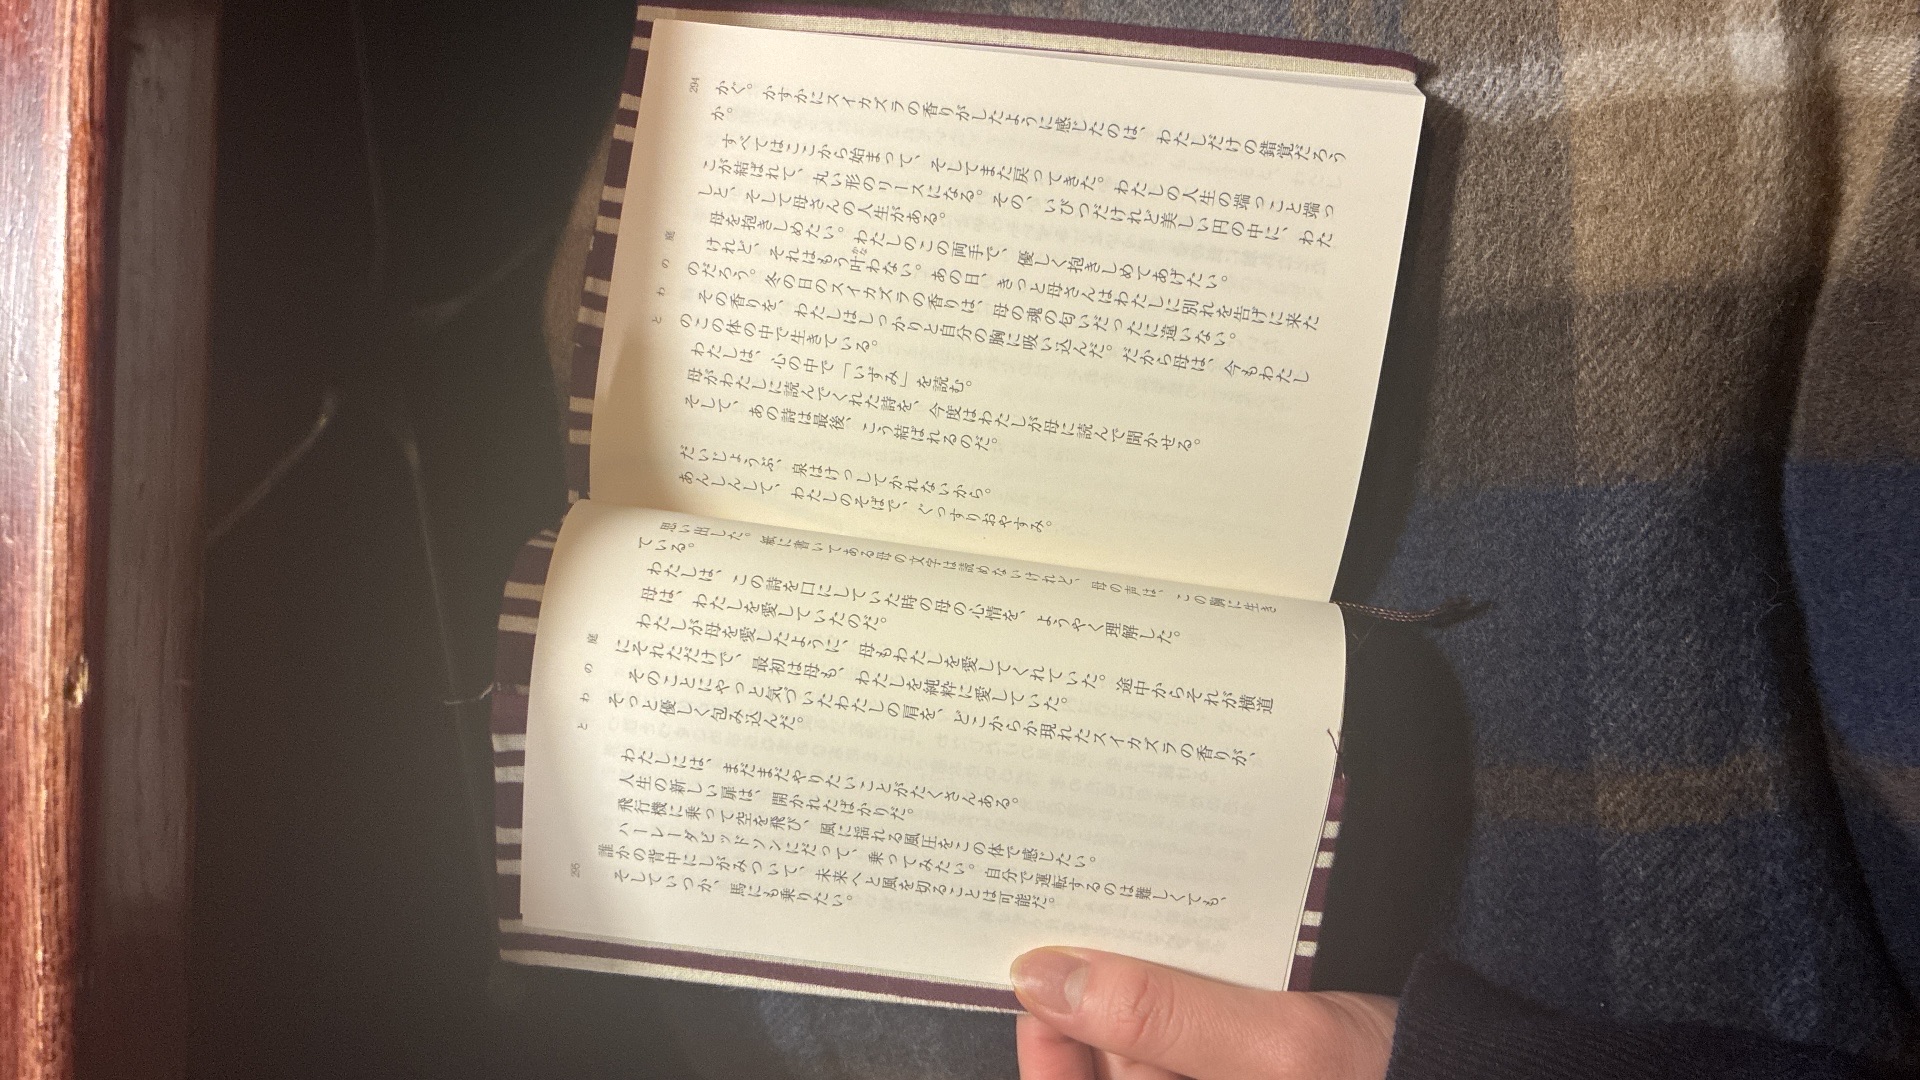 かぐ。かすかにスイカズラの香りがしたように感じたのは、わたしだけの錯覚だろう
か。
すべてはここから始まって、そしてまた戻ってきた。わたしの人生の端っこと端っ
こが結ばれて、丸い形のリースになる。その、いびつだけれど美しい円の中に、わた
しと、そして母さんの人生がある。
母を抱きしめたい。わたしのこの両手で、優しく抱きしめてあげたい。
けれど、それはもう叶わない。あの日、きっと母さんはわたしに別れを告げに来た
のだろう。冬の日のスイカズラの香りは、母の魂の匂いだったに違いない。
その香りを、わたしはしっかりと自分の胸に吸い込んだ。だから母は、今もわたし
のこの体の中で生きている。
わたしは、心の中で「いずみ」を読む。
母がわたしに読んでくれた詩を、今度はわたしが母に読んで聞かせる。
そして、あの詩は最後、こう結ばれるのだ。
だいじょうぶ、泉はけっしてかれないから。
あんしんして、わたしのそばで、ぐっすりおやすみ。
とわの庭
294
思い出した。紙に書いてある母の文字は読めないけれど、母の声は、この胸に生き
ている。
わたしは、この詩を口にしていた時の母の心情を、ようやく理解した。
母は、わたしを愛していたのだ。
わたしが母を愛したように、母もわたしを愛してくれていた。途中からそれが横道
にそれただけで、最初は母も、わたしを純粋に愛していた。
そのことにやっと気づいたわたしの肩を、どこからか現れたスイカズラの香りが、
そっと優しく包み込んだ。
わたしには、まだまだやりたいことがたくさんある。
人生の新しい扉は、開かれたばかりだ。
飛行機に乗って空を飛び、風に揺れる風圧をこの体で感じたい。
ハーレーダビッドソンにだって、乗ってみたい。自分で運転するのは難しくても、
誰かの背中にしがみついて、未来へと風を切ることは可能だ。
そしていつか、馬にも乗りたい。
とわの庭
295